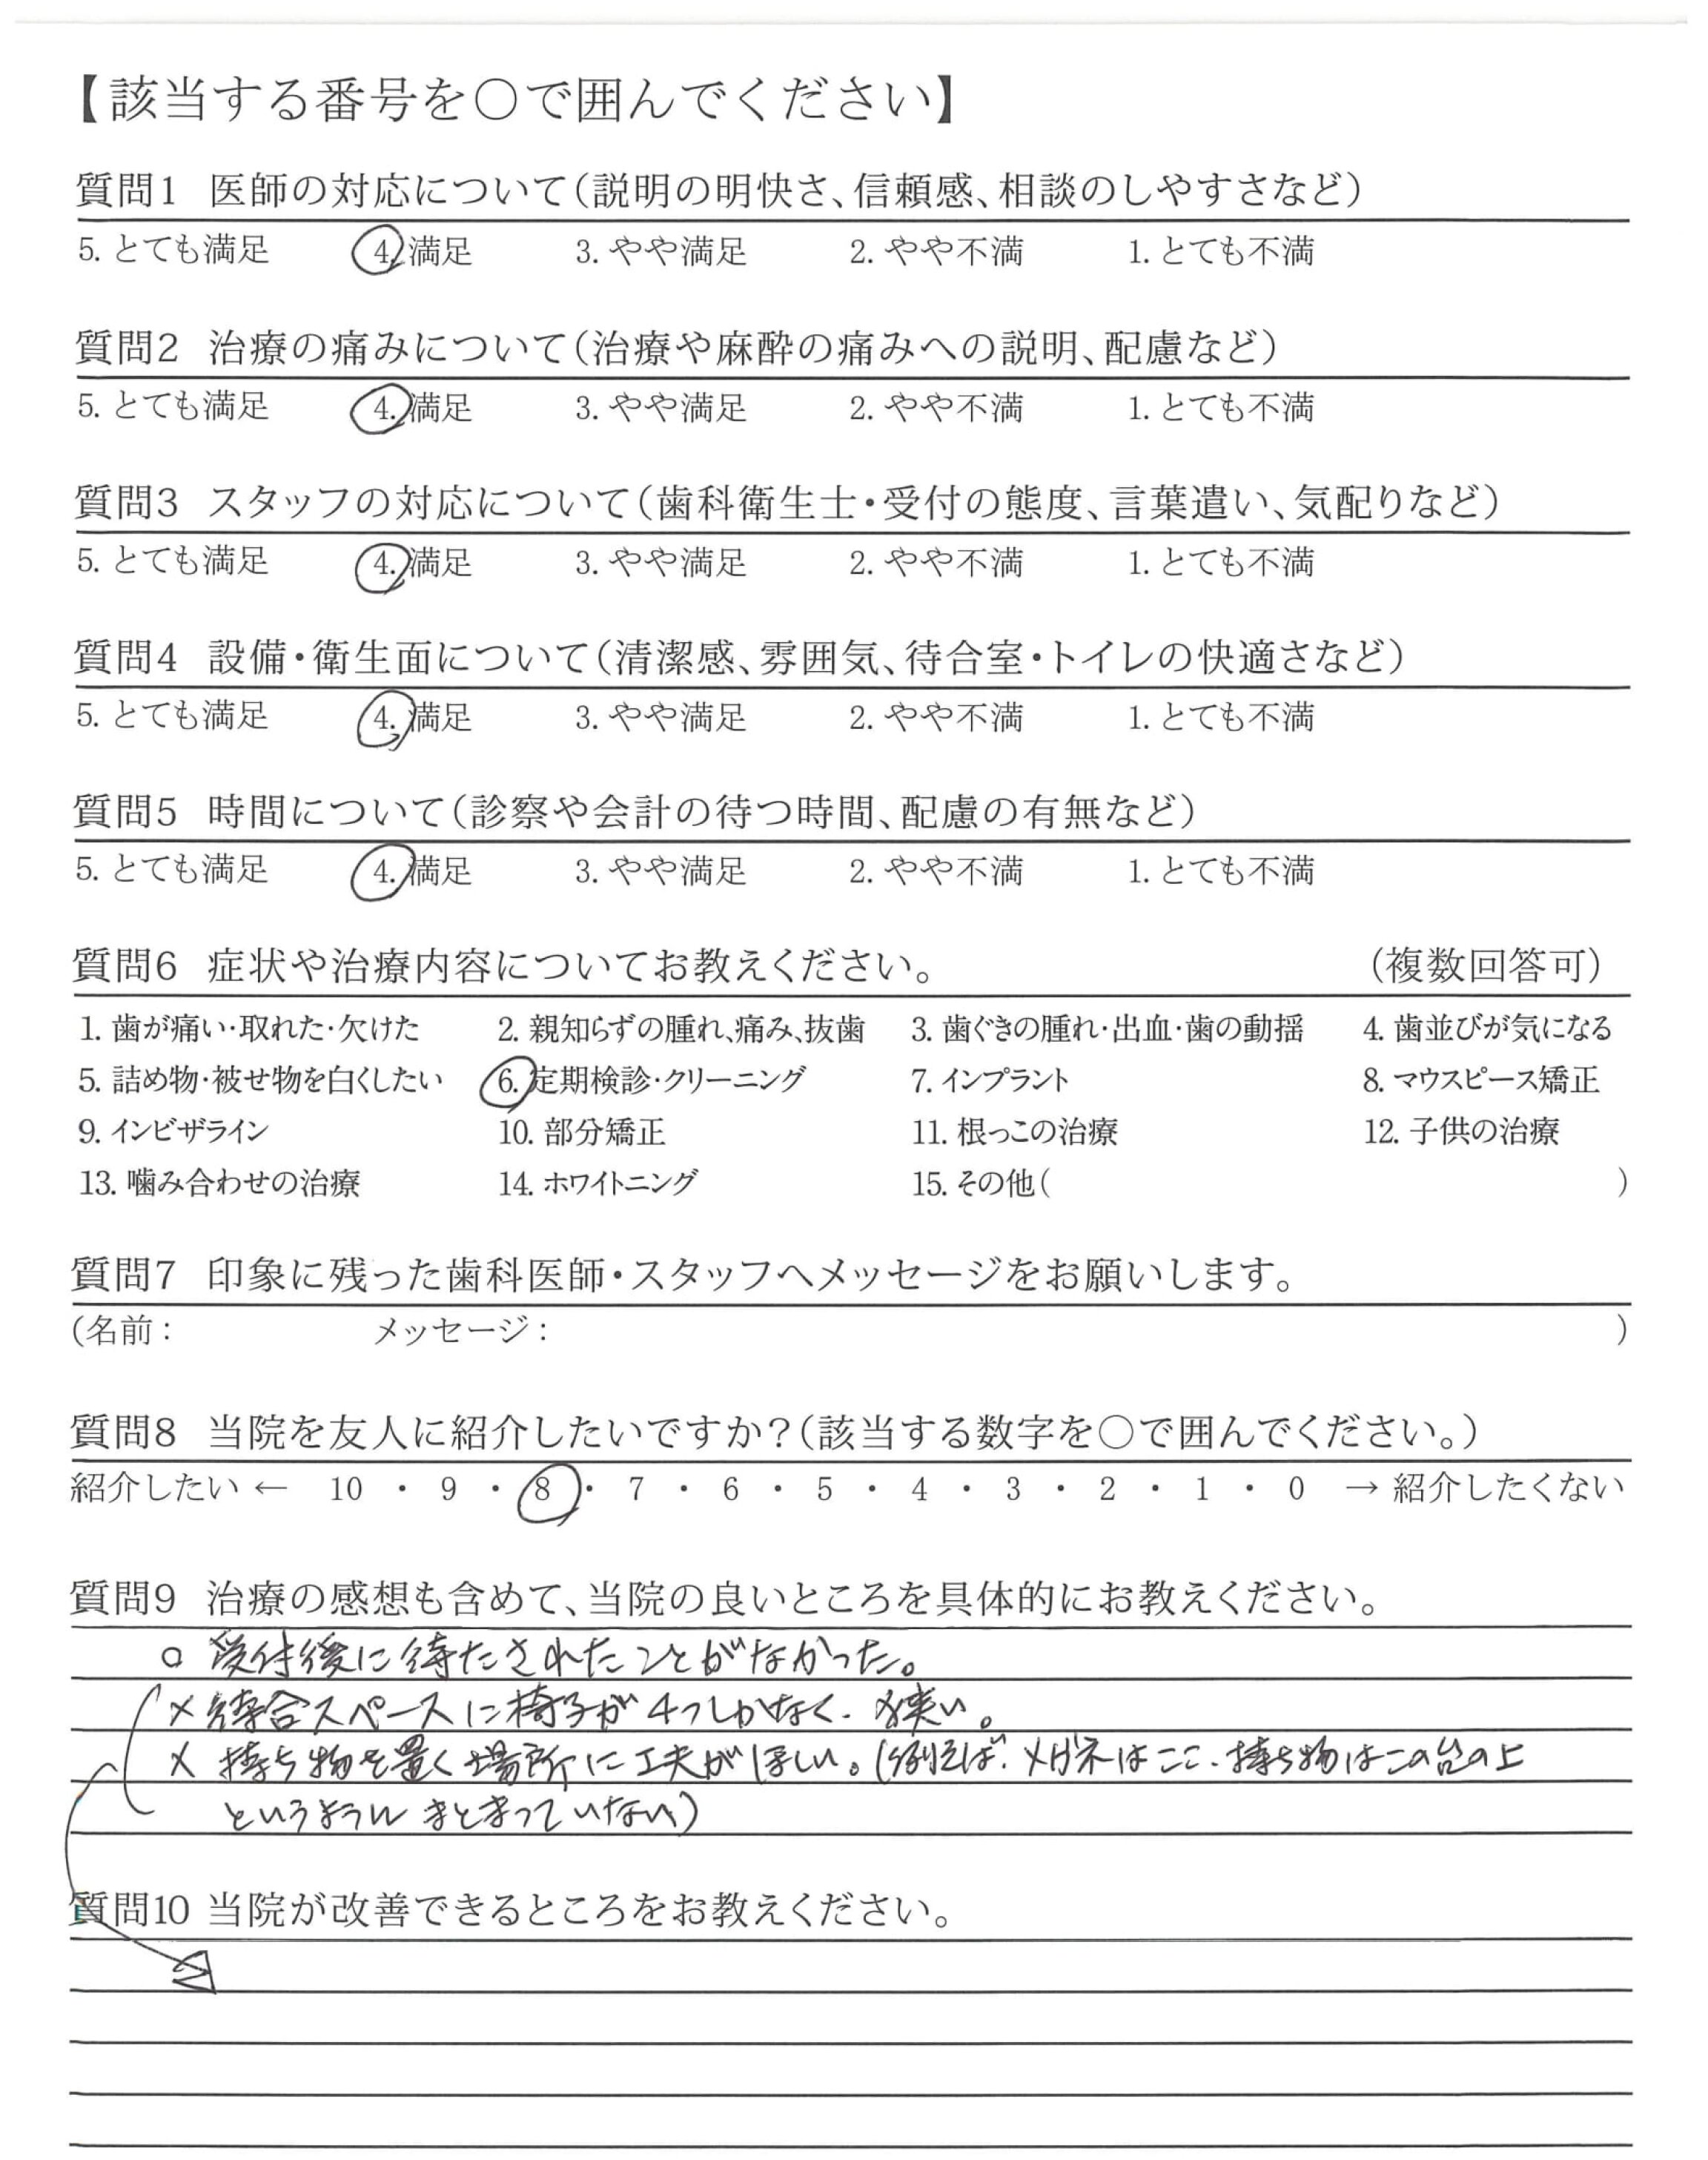 【該当する番号を○で囲んでください】
質問1 医師の対応について(説明の明快さ、信頼感、相談のしやすさなど)
5. とても満足 4. 満足 3. やや満足 2. やや不満 1. とても不満
質問2 治療の痛みについて(治療や麻酔の痛みへの説明、配慮など)
5. とても満足 4. 満足 3. やや満足 2. やや不満 1. とても不満
質問3 スタッフの対応について(歯科衛生士・受付の態度、言葉遣い、気配りなど)
5. とても満足 4. 満足 3. やや満足 2. やや不満 1. とても不満
質問4 設備・衛生面について(清潔感、雰囲気、待合室・トイレの快適さなど)
5. とても満足 4. 満足 3. やや満足 2. やや不満 1. とても不満
質問5 時間について(診察や会計の待つ時間、配慮の有無など)
5. とても満足 4. 満足 3. やや満足 2. やや不満 1. とても不満
質問6 症状や治療内容についてお教えください。 (複数回答可)
1. 歯が痛い・取れた・欠けた 2. 親知らずの腫れ、痛み、抜歯 3. 歯ぐきの腫れ・出血・歯の動揺 4. 歯並びが気になる
5. 詰め物・被せ物を白くしたい 6. 定期検診・クリーニング 7. インプラント 8. マウスピース矯正
9. インビザライン 10. 部分矯正 11. 根っこの治療 12. 子供の治療
13. 噛み合わせの治療 14. ホワイトニング 15. その他( )
質問7 印象に残った歯科医師・スタッフへメッセージをお願いします。
(名前: メッセージ: )
質問8 当院を友人に紹介したいですか?(該当する数字を○で囲んでください。)
紹介したい ← 10 ・ 9 ・ 8 ・ 7 ・ 6 ・ 5 ・ 4 ・ 3 ・ 2 ・ 1 ・ 0 → 紹介したくない
質問9 治療の感想も含めて、当院の良いところを具体的にお教えください。
○ 受付後に待たされたことがなかった。
× 待合スペースに椅子が4つしかなく、狭い。
× 持ち物を置く場所に工夫がほしい。(例えば、メガネはここ、持ち物はこの台の上
というように まとまっていない)
質問10 当院が改善できるところをお教えください。